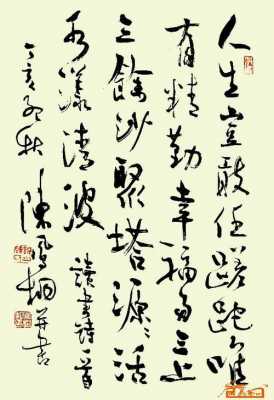 人生岂敢任蹉跎唯
有精勤幸福多三上
三餘沙聚塔源〻活
水漾清波 讀書詩一首
丁亥孟秋 陳鳳桐并書